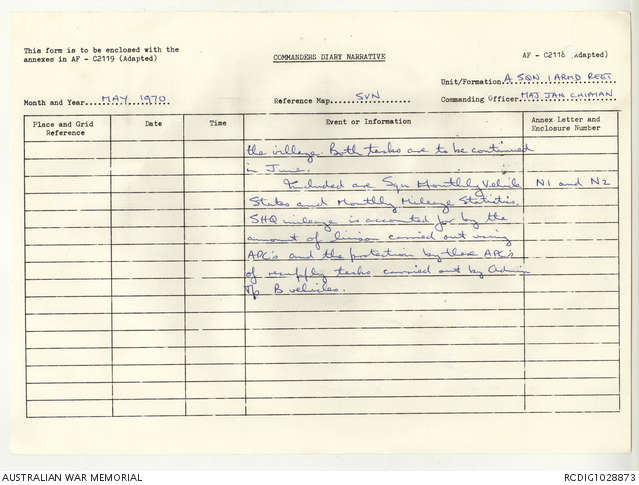 This form is to be enclosed with the
annexes in AF - C2119 (Adapted)
COMMANDERS DIARY NARRATIVE
AF - C2118 Adapted)
Unit/Formation A SQN 1 ARMD REGT
Month and Year MAY 1970
Reference Map SVN
Commanding Officer MAJ JAH CHIPMAN
Place and Grid Reference
Date
Time
Event or Information
Annex Letter and Enclosure Number
the village. Both tasks are to be continued
in June.
Included are Sqn Monthly Vehicle N1 and N2
States and Monthly Mileage Statistics.
SHQ mileage is accounted for by the
amount of liaison carried out using
APC's and the protection by these APC's
of resupply tasks carried out by Admin
Tp B vehicles.
AUSTRALIAN WAR MEMORIAL
RCDIG1028873